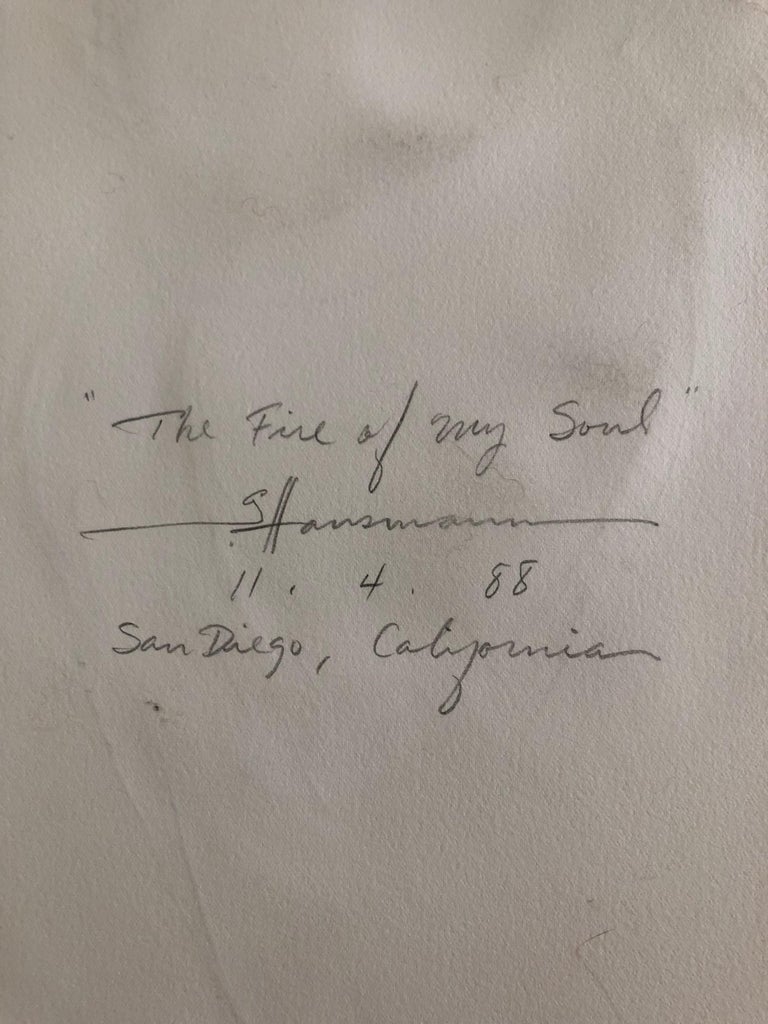 "The Fire of my Soul"
G Hausmann
11. 4. 88
San Diego, California